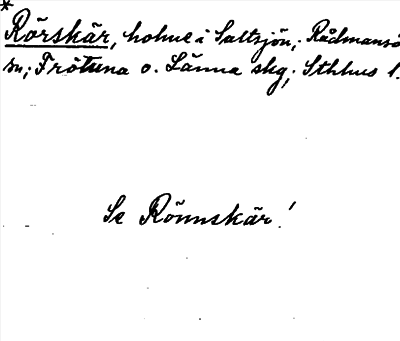 *
Rörskär, holme i Saltsjön; Rådmansö
sn; Frötuna o. Länna skg; Sthlms l.
Se Rönnskär!